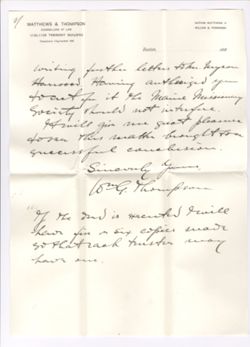 2/
MATTHEWS & THOMPSON
COUNSELLORS AT LAW
TREMONT BUILDING
Boston, 190
NATHAN MATTHEWS, Jr.
WILLIAM G. THOMPSON
writing further letter to Mr. Myron
Having authorized you
to act for it the Maine Missionary
Society should not interfere.
It will give me great pleasure
to see this matter brought to a
successful conclusion.
Sincerely Yours,
Wm G. Thompson
If the deed is executed I will
have five or six copies made
so that each trustee may
have one.